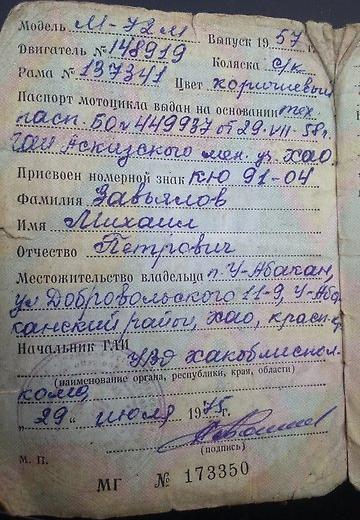 Модель М-72м
Двигатель № 148919 Выпуск 1957 г.
Рама № 137341 Коляска с/к
Цвет коричневый
Паспорт мотоцикла выдан на основании тех
пасп. БО № 449937 от 29-VII-58г.
ГАИ Аскизского мен. уз. ХАО
Присвоен номерной знак КЮ 91-04
Фамилия Завьялов
Имя Михаил
Отчество Петрович
Местожительство владельца п. У-Абакан,
ул Добровольского 11-9, У-Аба
канский район, ХАО, красн-
Начальник ГАИ
УВД хакоблиспол-
(наименование органа, республики, края, области)
кома
„29" июля 1975 г.
(подпись)
М. П.
МГ № 173350